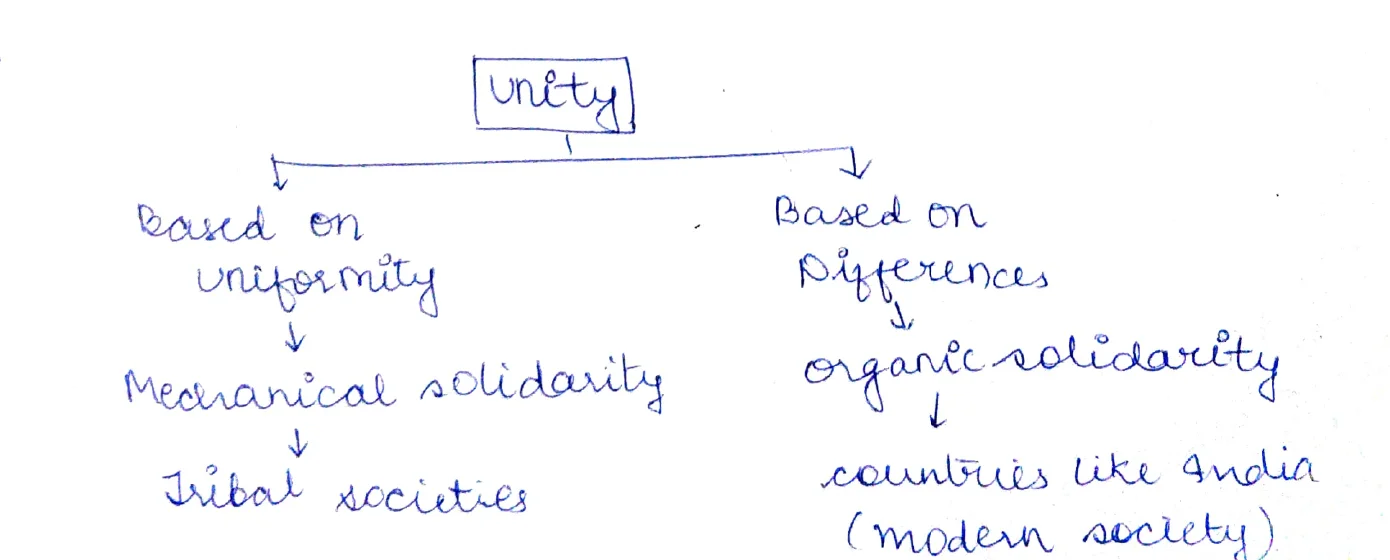 Unity
Based on
uniformity
Mechanical solidarity
Tribal societies
Based on
Differences
organic solidarity
countries like India
(modern society)